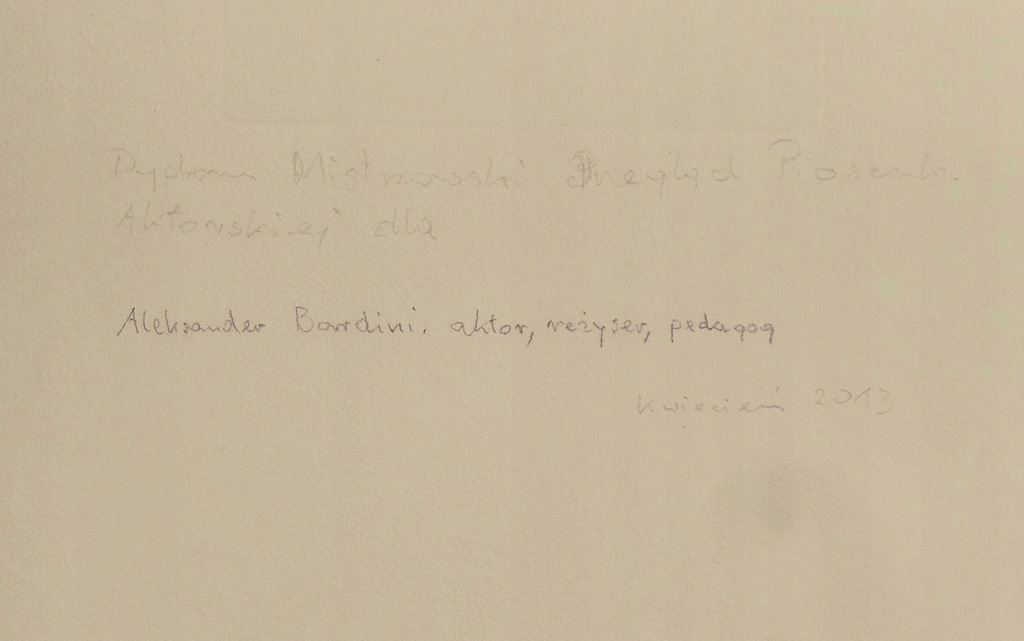 Dyplom Mistrzowski Przegląd Piosenk.
Aktorskiej dla
Aleksander Bardini. aktor, reżyser, pedagog
kwiecień 2013